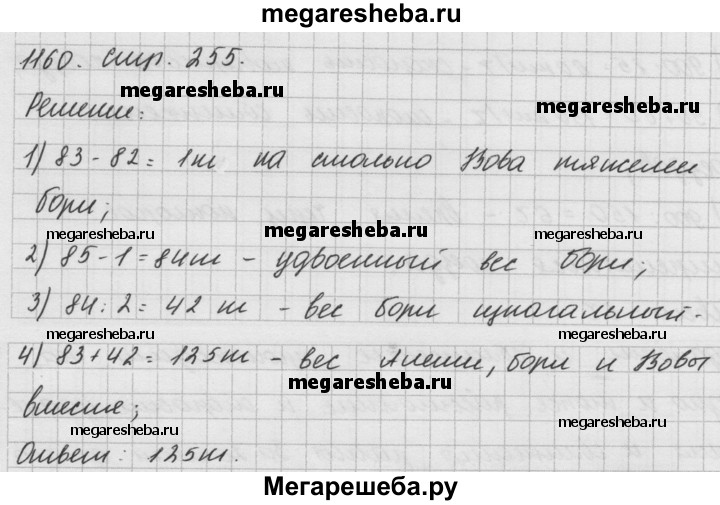 megaresheba.ru
1160. стр. 255.
megaresheba.ru
Решение:
megaresheba.ru
1) 83 - 82 = 1т на столько Вова тяжелее
Бори;
megaresheba.ru
megaresheba.ru
megaresheba.ru
2) 85 - 1 = 84т - удвоенный вес Бори;
3) 84 : 2 = 42 т - вес Бори
megaresheba.ru
megaresheba.ru
4) 83 + 42 = 125т - вес Алеши, Бори и Вовы
megaresheba.ru
вместе;
megaresheba.ru
megaresheba.ru
Ответ: 125т.
Мегарешеба.ру